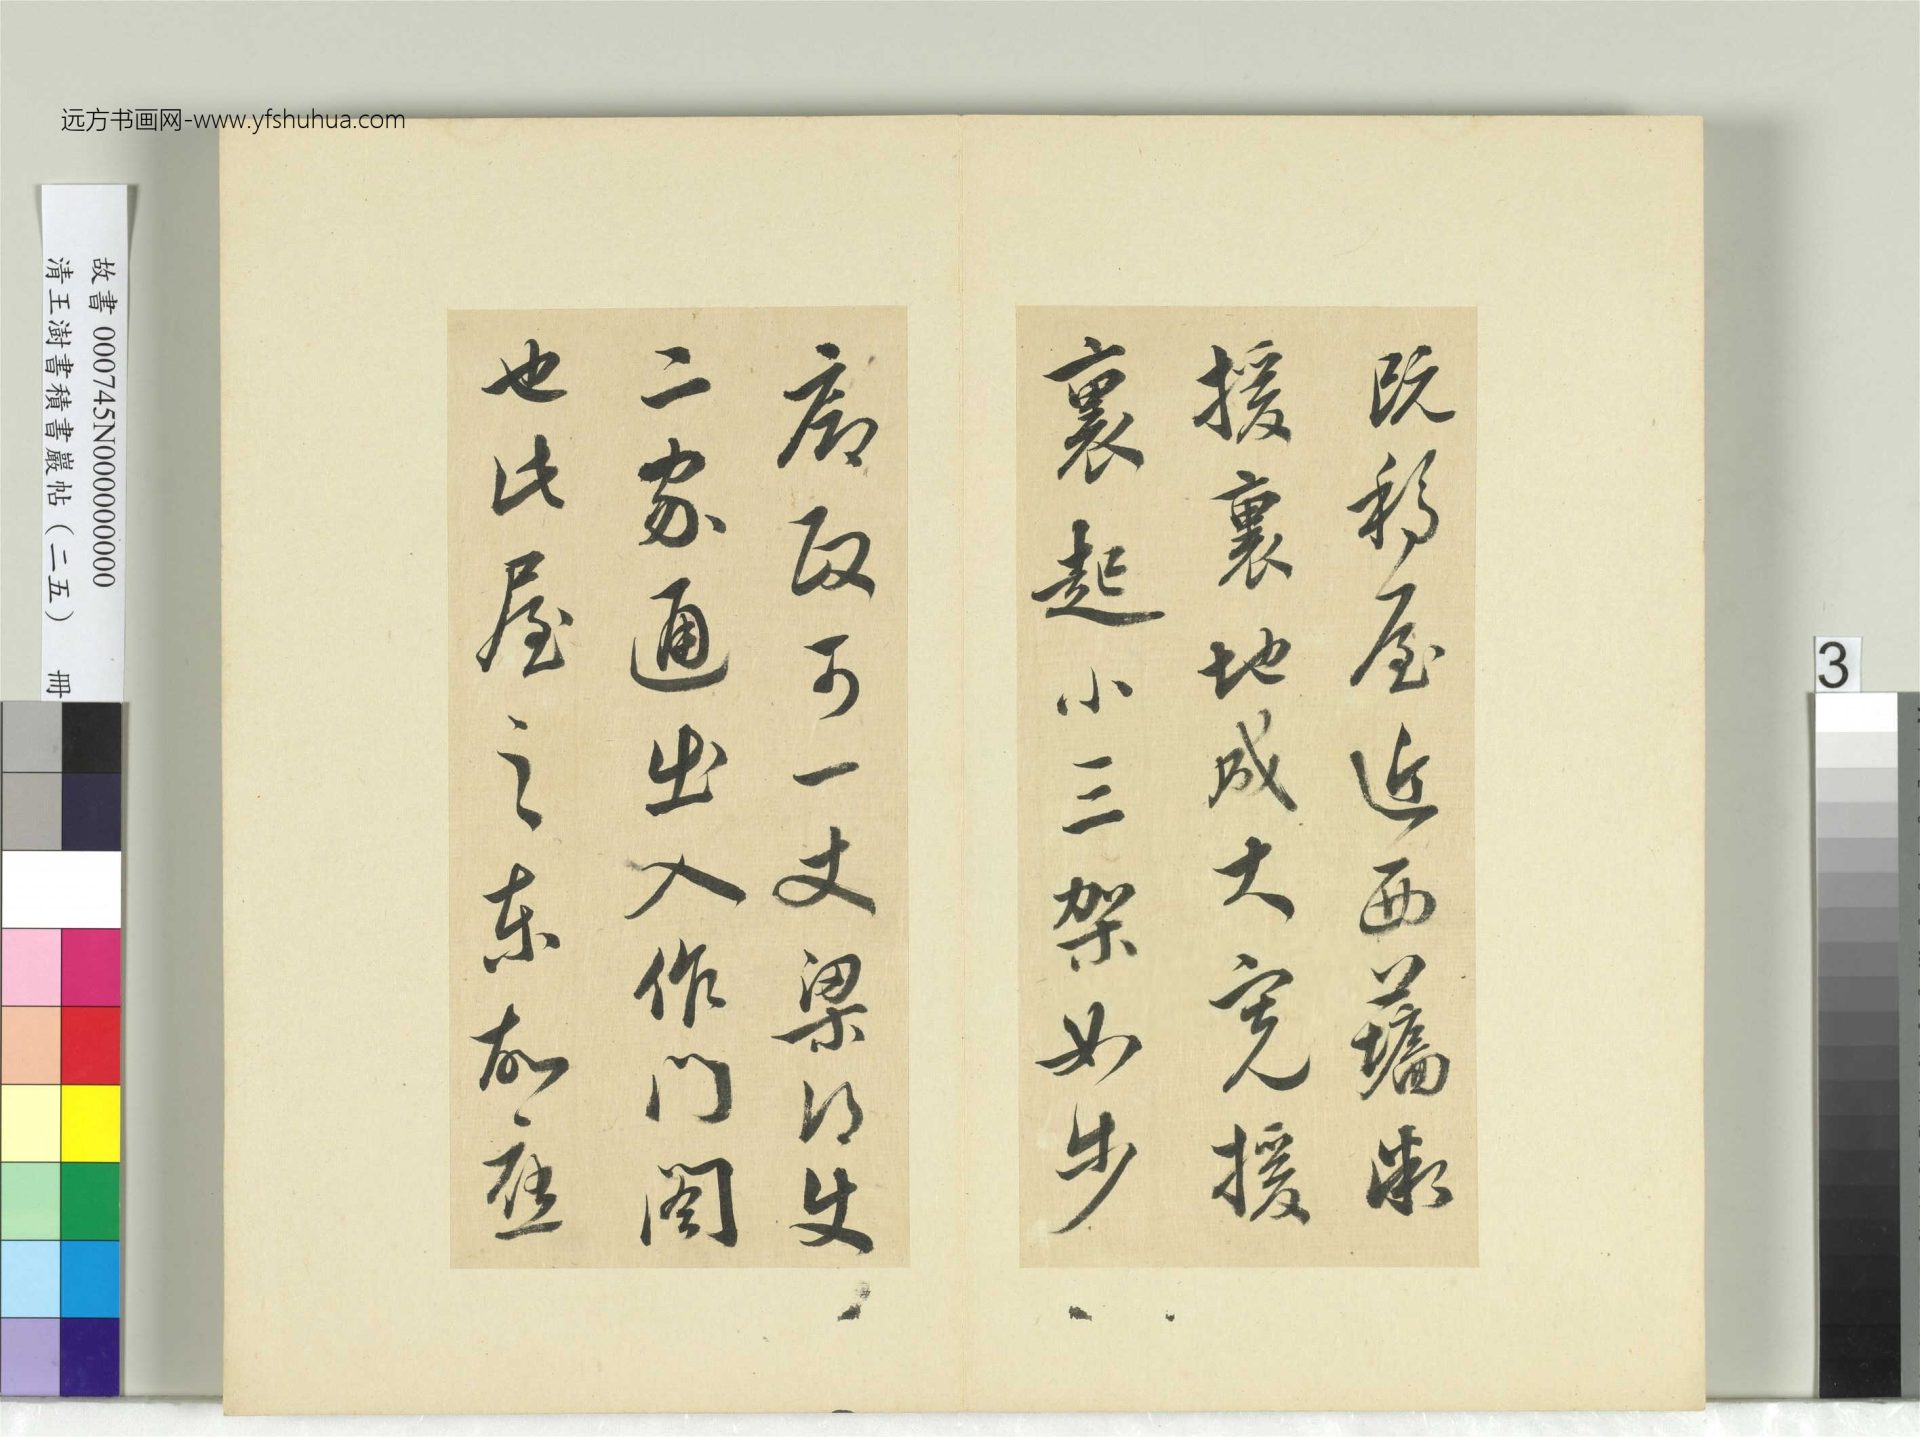 远方书画网-www.yfshuhua.com
故書 000745N000000000
清王澍書積書巖帖（二五） 冊
3
既移屋近西牆
援裏地成大寬援
裏起小三架如步
廊可一丈梁得使
二家通出入作門閤
也此屋之東故應